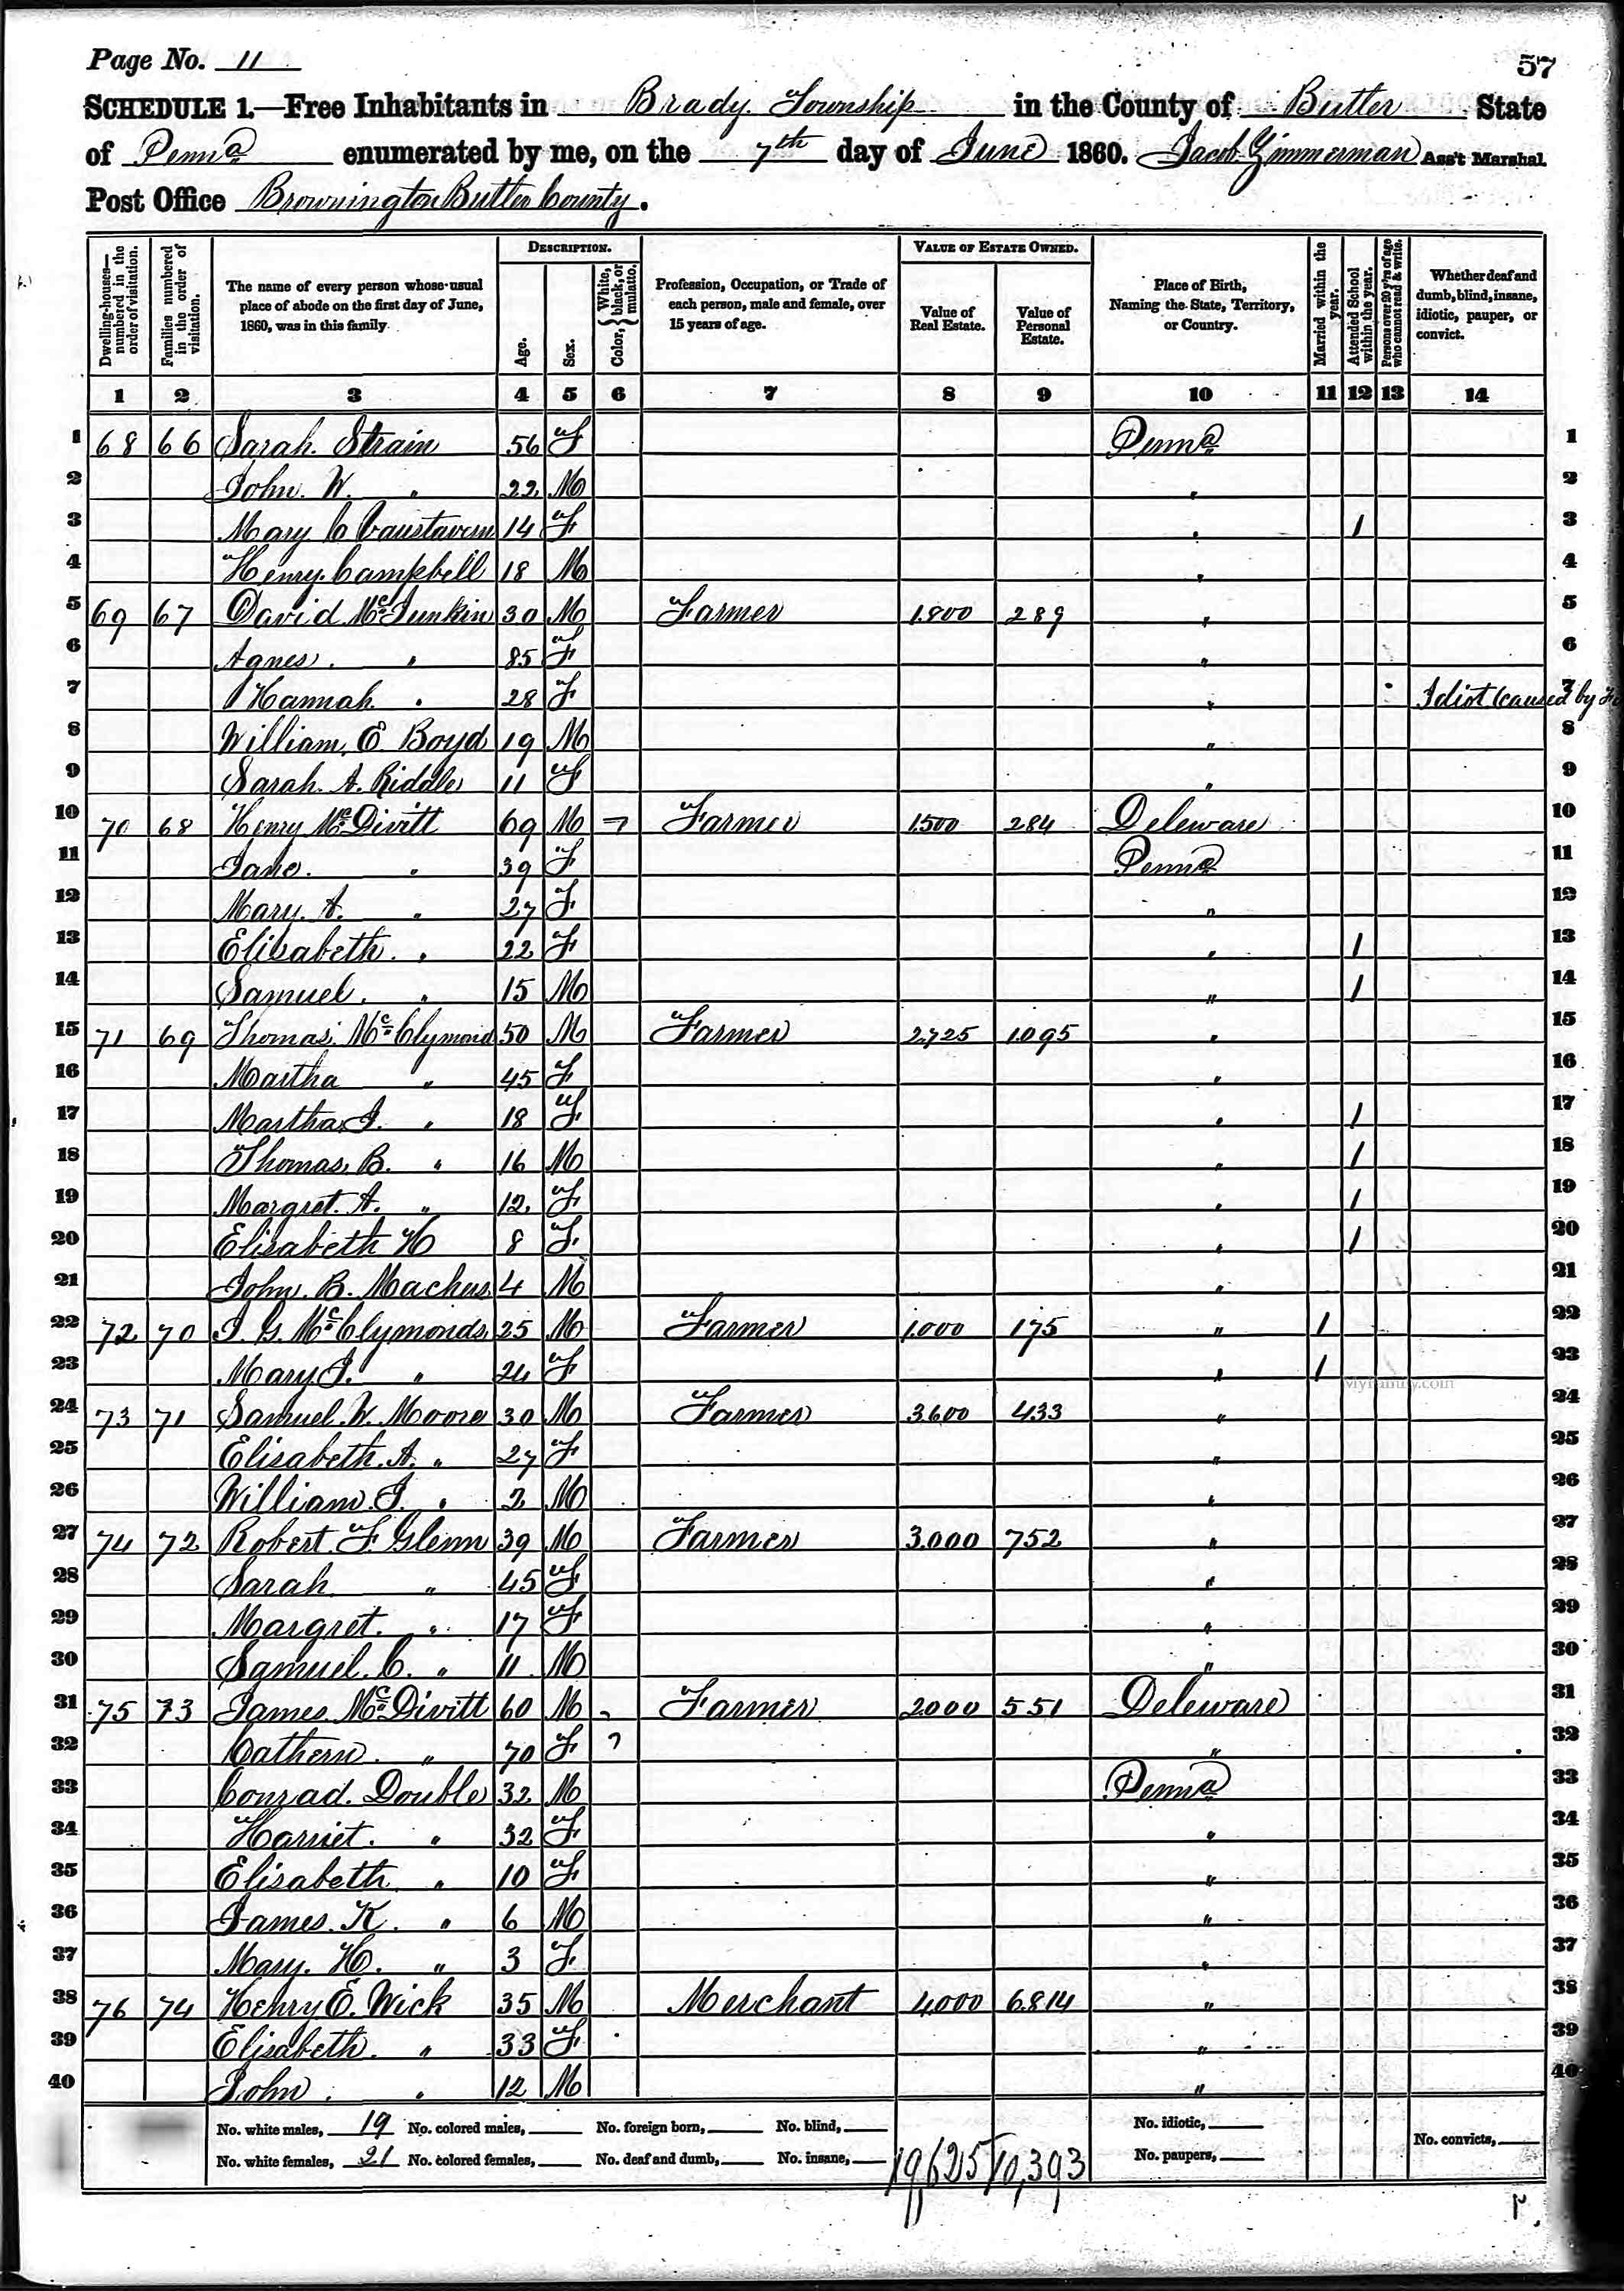 Page No. 11
57
SCHEDULE 1.—Free Inhabitants in Brady Township in the County of Butler State
of Penna enumerated by me, on the 7th day of June 1860. Jacob Zimmerman Ass't Marshal.
Post Office Brownington Butler County.
Dwelling-houses—numbered in the order of visitation.
Families numbered in the order of visitation.
The name of every person whose usual place of abode on the first day of June, 1860, was in this family.
DESCRIPTION.
Age.
Sex.
Color, White, black, or mulatto.
Profession, Occupation, or Trade of each person, male and female, over 15 years of age.
VALUE OF ESTATE OWNED.
Value of Real Estate.
Value of Personal Estate.
Place of Birth, Naming the State, Territory, or Country.
Married within the year.
Attended School within the year.
Persons over 20 y'rs of age who cannot read & write.
Whether deaf and dumb, blind, insane, idiotic, pauper, or convict.
1 2 3 4 5 6 7 8 9 10 11 12 13 14
1 68 66 Sarah Strain 56 F Penna 1
2 John W. " 22 M " 2
3 Mary C 14 F " 1 3
4 Henry Campbell 18 M " 4
5 69 67 David McJunkin 30 M Farmer 1.800 289 " 5
6 Agnes " 85 F " 6
7 Hannah " 28 F " Idiot caused by 7
8 William E Boyd 19 M " 8
9 Sarah A. Riddle 11 F " 9
10 70 68 Henry McDivitt 69 M Farmer 1.500 284 Deleware 10
11 Jane " 39 F Penna 11
12 Mary A. " 27 F " 12
13 Elisabeth " 22 F " 1 13
14 Samuel " 15 M " 1 14
15 71 69 Thomas McClymond 50 M Farmer 2.725 1.095 " 15
16 Martha " 45 F " 16
17 Martha J. " 18 F " 1 17
18 Thomas B. " 16 M " 1 18
19 Margret A. " 12 F " 1 19
20 Elisabeth H 8 F " 1 20
21 John B. 4 M " 21
22 72 70 J. G. McClymonds 25 M Farmer 1.000 175 " 1 22
23 Mary J. " 24 F " 1 23
MyFamily.com
24 73 71 Samuel W. Moore 30 M Farmer 3.600 433 " 24
25 Elisabeth A. " 27 F " 25
26 William J. " 2 M " 26
27 74 72 Robert F. Glenn 39 M Farmer 3.000 752 " 27
28 Sarah " 45 F " 28
29 Margret " 17 F " 29
30 Samuel C. " 11 M " 30
31 75 73 James McDivitt 60 M Farmer 2000 551 Deleware 31
32 Cathern " 70 F " 32
33 Conrad Double 32 M Penna 33
34 Harriet " 32 F " 34
35 Elisabeth " 10 F " 35
36 James K. " 6 M " 36
37 Mary H. " 3 F " 37
38 76 74 Henry E. Wick 35 M Merchant 4,000 6.814 " 38
39 Elisabeth " 33 F " 39
40 John " 12 M " 40
No. white males, 19 No. colored males, No. foreign born, No. blind, No. idiotic, No. convicts,
No. white females, 21 No. colored females, No. deaf and dumb, No. insane, 19,625 10,393 No. paupers,